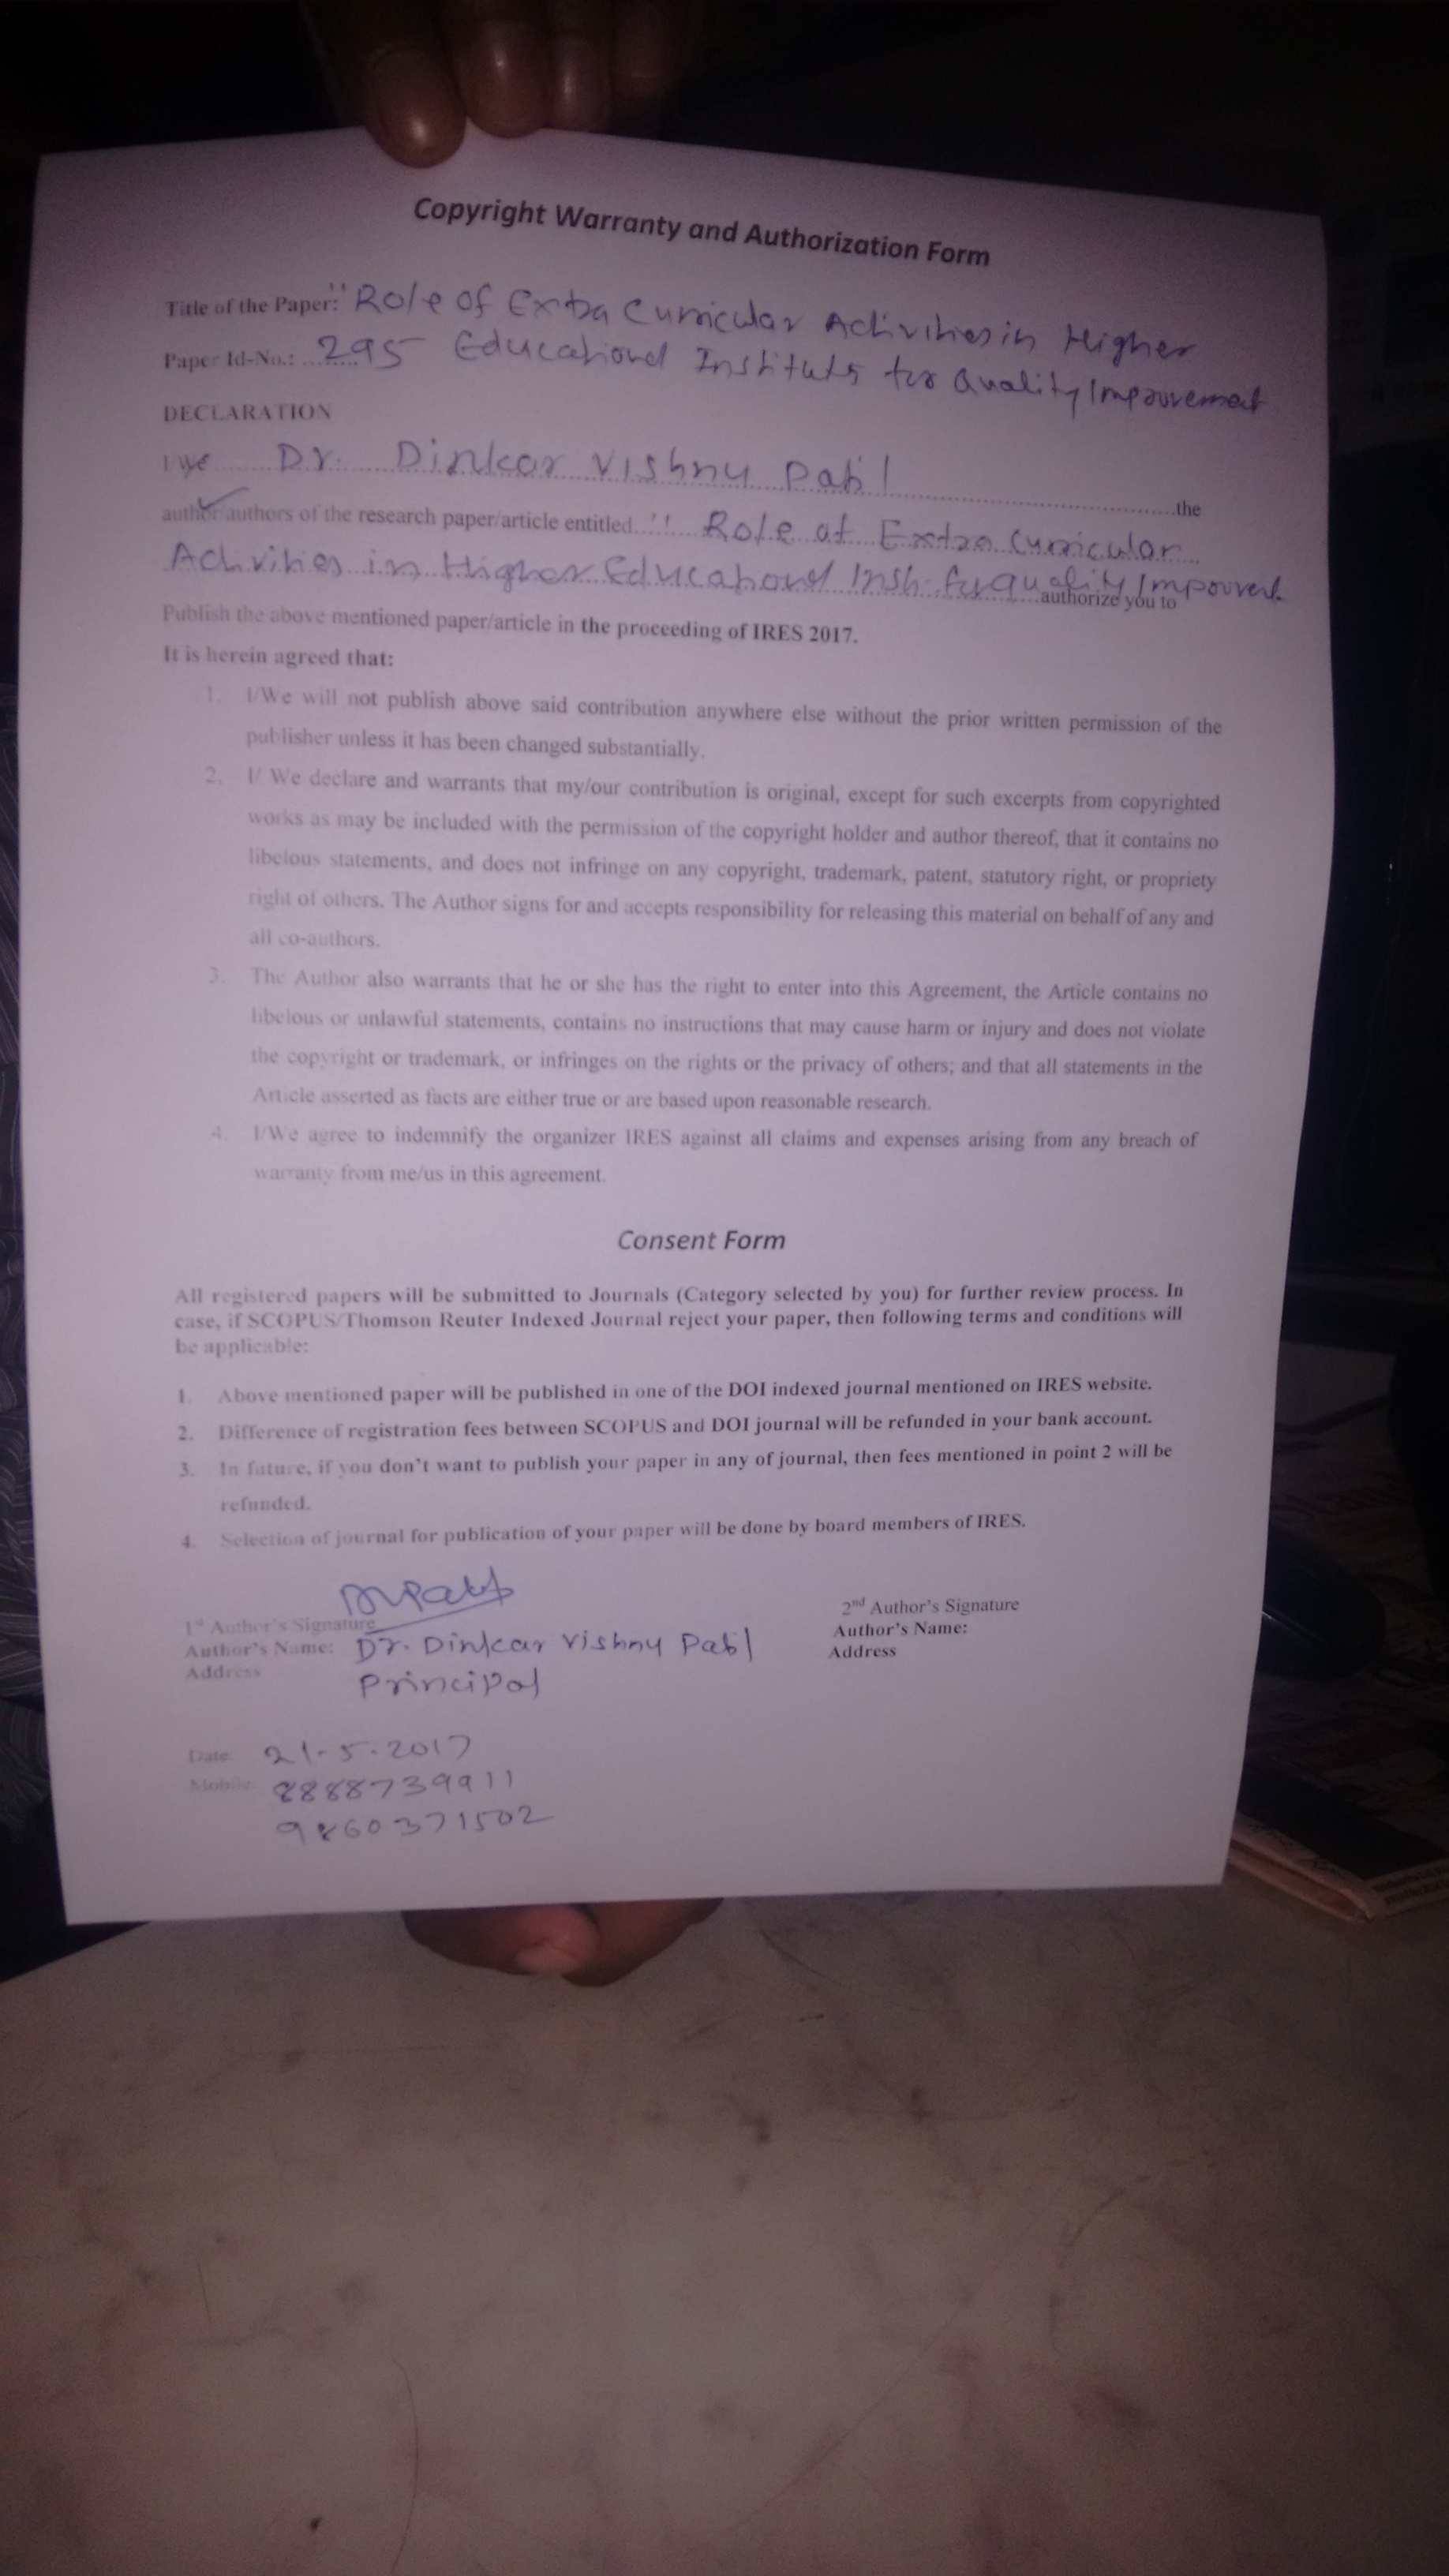 Copyright Warranty and Authorization Form
Title of the Paper: "Role of Extra Curricular Activities in Higher
Paper Id-No.: ...295 Educational Institutes for Quality Improvement
DECLARATION
I/We Dr. Dinkar Vishnu Patil the
author/authors of the research paper/article entitled " Role of Extra Curricular
Activities in Higher Educational Insti. for quality Improvent authorize you to
Publish the above mentioned paper/article in the proceeding of IRES 2017.
It is herein agreed that:
1. I/We will not publish above said contribution anywhere else without the prior written permission of the
publisher unless it has been changed substantially.
2. I/ We declare and warrants that my/our contribution is original, except for such excerpts from copyrighted
works as may be included with the permission of the copyright holder and author thereof, that it contains no
libelous statements, and does not infringe on any copyright, trademark, patent, statutory right, or propriety
right of others. The Author signs for and accepts responsibility for releasing this material on behalf of any and
all co-authors.
3. The Author also warrants that he or she has the right to enter into this Agreement, the Article contains no
libelous or unlawful statements, contains no instructions that may cause harm or injury and does not violate
the copyright or trademark, or infringes on the rights or the privacy of others; and that all statements in the
Article asserted as facts are either true or are based upon reasonable research.
4. I/We agree to indemnify the organizer IRES against all claims and expenses arising from any breach of
warranty from me/us in this agreement.
Consent Form
All registered papers will be submitted to Journals (Category selected by you) for further review process. In
case, if SCOPUS/Thomson Reuter Indexed Journal reject your paper, then following terms and conditions will
be applicable:
1. Above mentioned paper will be published in one of the DOI indexed journal mentioned on IRES website.
2. Difference of registration fees between SCOPUS and DOI journal will be refunded in your bank account.
3. In future, if you don't want to publish your paper in any of journal, then fees mentioned in point 2 will be
refunded.
4. Selection of journal for publication of your paper will be done by board members of IRES.
DVPatil
1st Author's Signature
Author's Name: Dr. Dinkar Vishnu Patil
Address Principal
2nd Author's Signature
Author's Name:
Address
Date: 21-5-2017
Mobile: 8888739911
9860371502